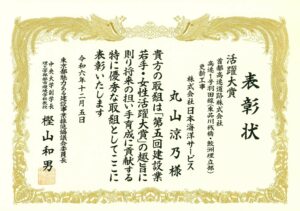 表彰状
活躍大賞
首都高速道路株式会社
高速1号羽田線（東品川桟橋・鮫洲埋立部）
更新工事
株式会社日本海洋サービス
丸山涼乃様
貴方の取組は「第五回建設業
若手・女性活躍大賞」の趣旨に
則り将来の担い手育成に貢献する
特に優秀な取組としてここに
表彰いたします
令和六年十二月五日
東京都魅力ある建設事業推進協議会委員長
中央大学副学長
樫山和男